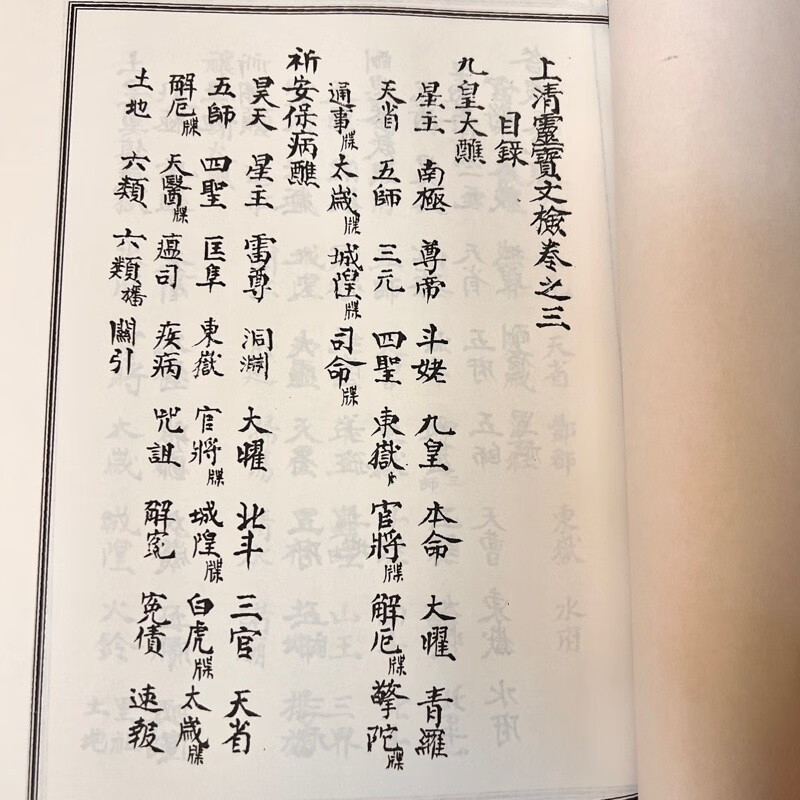 上清靈寶文檢卷之三
目錄
九皇大醮
星主 南極 尊帝 斗姥 九皇 本命 大曜 青羅
天省 五師 三元 四聖 東嶽 官將牒 解厄牒 擎陀牒
通事牒 太歲牒 城隍牒 司命牒
祈安保病醮
昊天 星主 雷尊 洞淵 大曜 北斗 三官 天省
五師 四聖 匡阜 東嶽 官將牒 城隍牒 白虎牒 太歲牒
解厄牒 天醫牒 瘟司 疾病 咒詛 解冤 冤債 速報
土地 六類 六類旛 關引